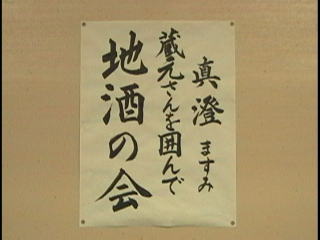 真澄 ますみ
蔵元さんを囲んで
地酒の会